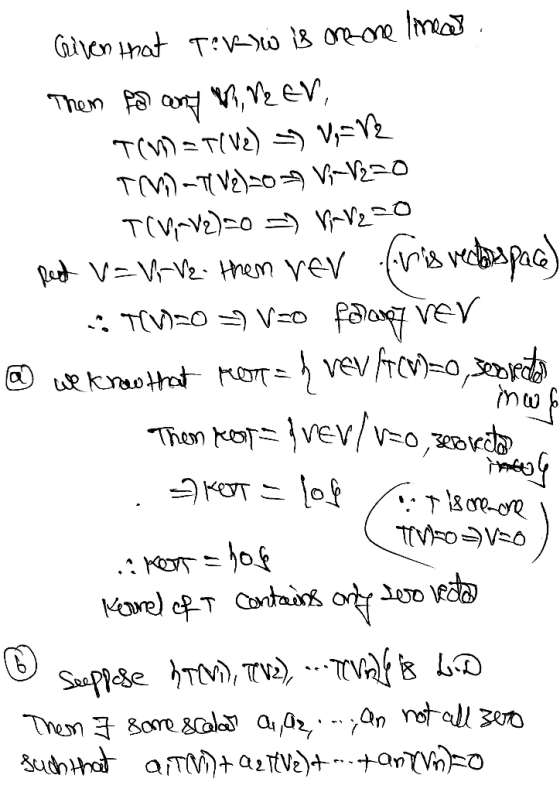 Given that T: V→W is one-one linear.
Then for any V₁, V₂ ∈ V,
T(V₁) = T(V₂) ⇒ V₁ = V₂
T(V₁) - T(V₂) = 0 ⇒ V₁ - V₂ = 0
T(V₁ - V₂) = 0 ⇒ V₁ - V₂ = 0
put V = V₁ - V₂. then V ∈ V (∵ V is vector space)
∴ T(V) = 0 ⇒ V = 0 for any V ∈ V
(a) we know that KerT = { V ∈ V / T(V) = 0, zero vector
in W }
Then KerT = { V ∈ V / V = 0, zero vector }
⇒ KerT = {0} (∵ T is one-one
T(V) = 0 ⇒ V = 0)
∴ KerT = {0}
Kernel of T contains only zero vector
(b) Suppose {T(V₁), T(V₂), ... T(Vₙ)} is L.D
Then ∃ some scalar a₁, a₂, ..., aₙ not all zero
such that a₁T(V₁) + a₂T(V₂) + ... + aₙT(Vₙ) = 0